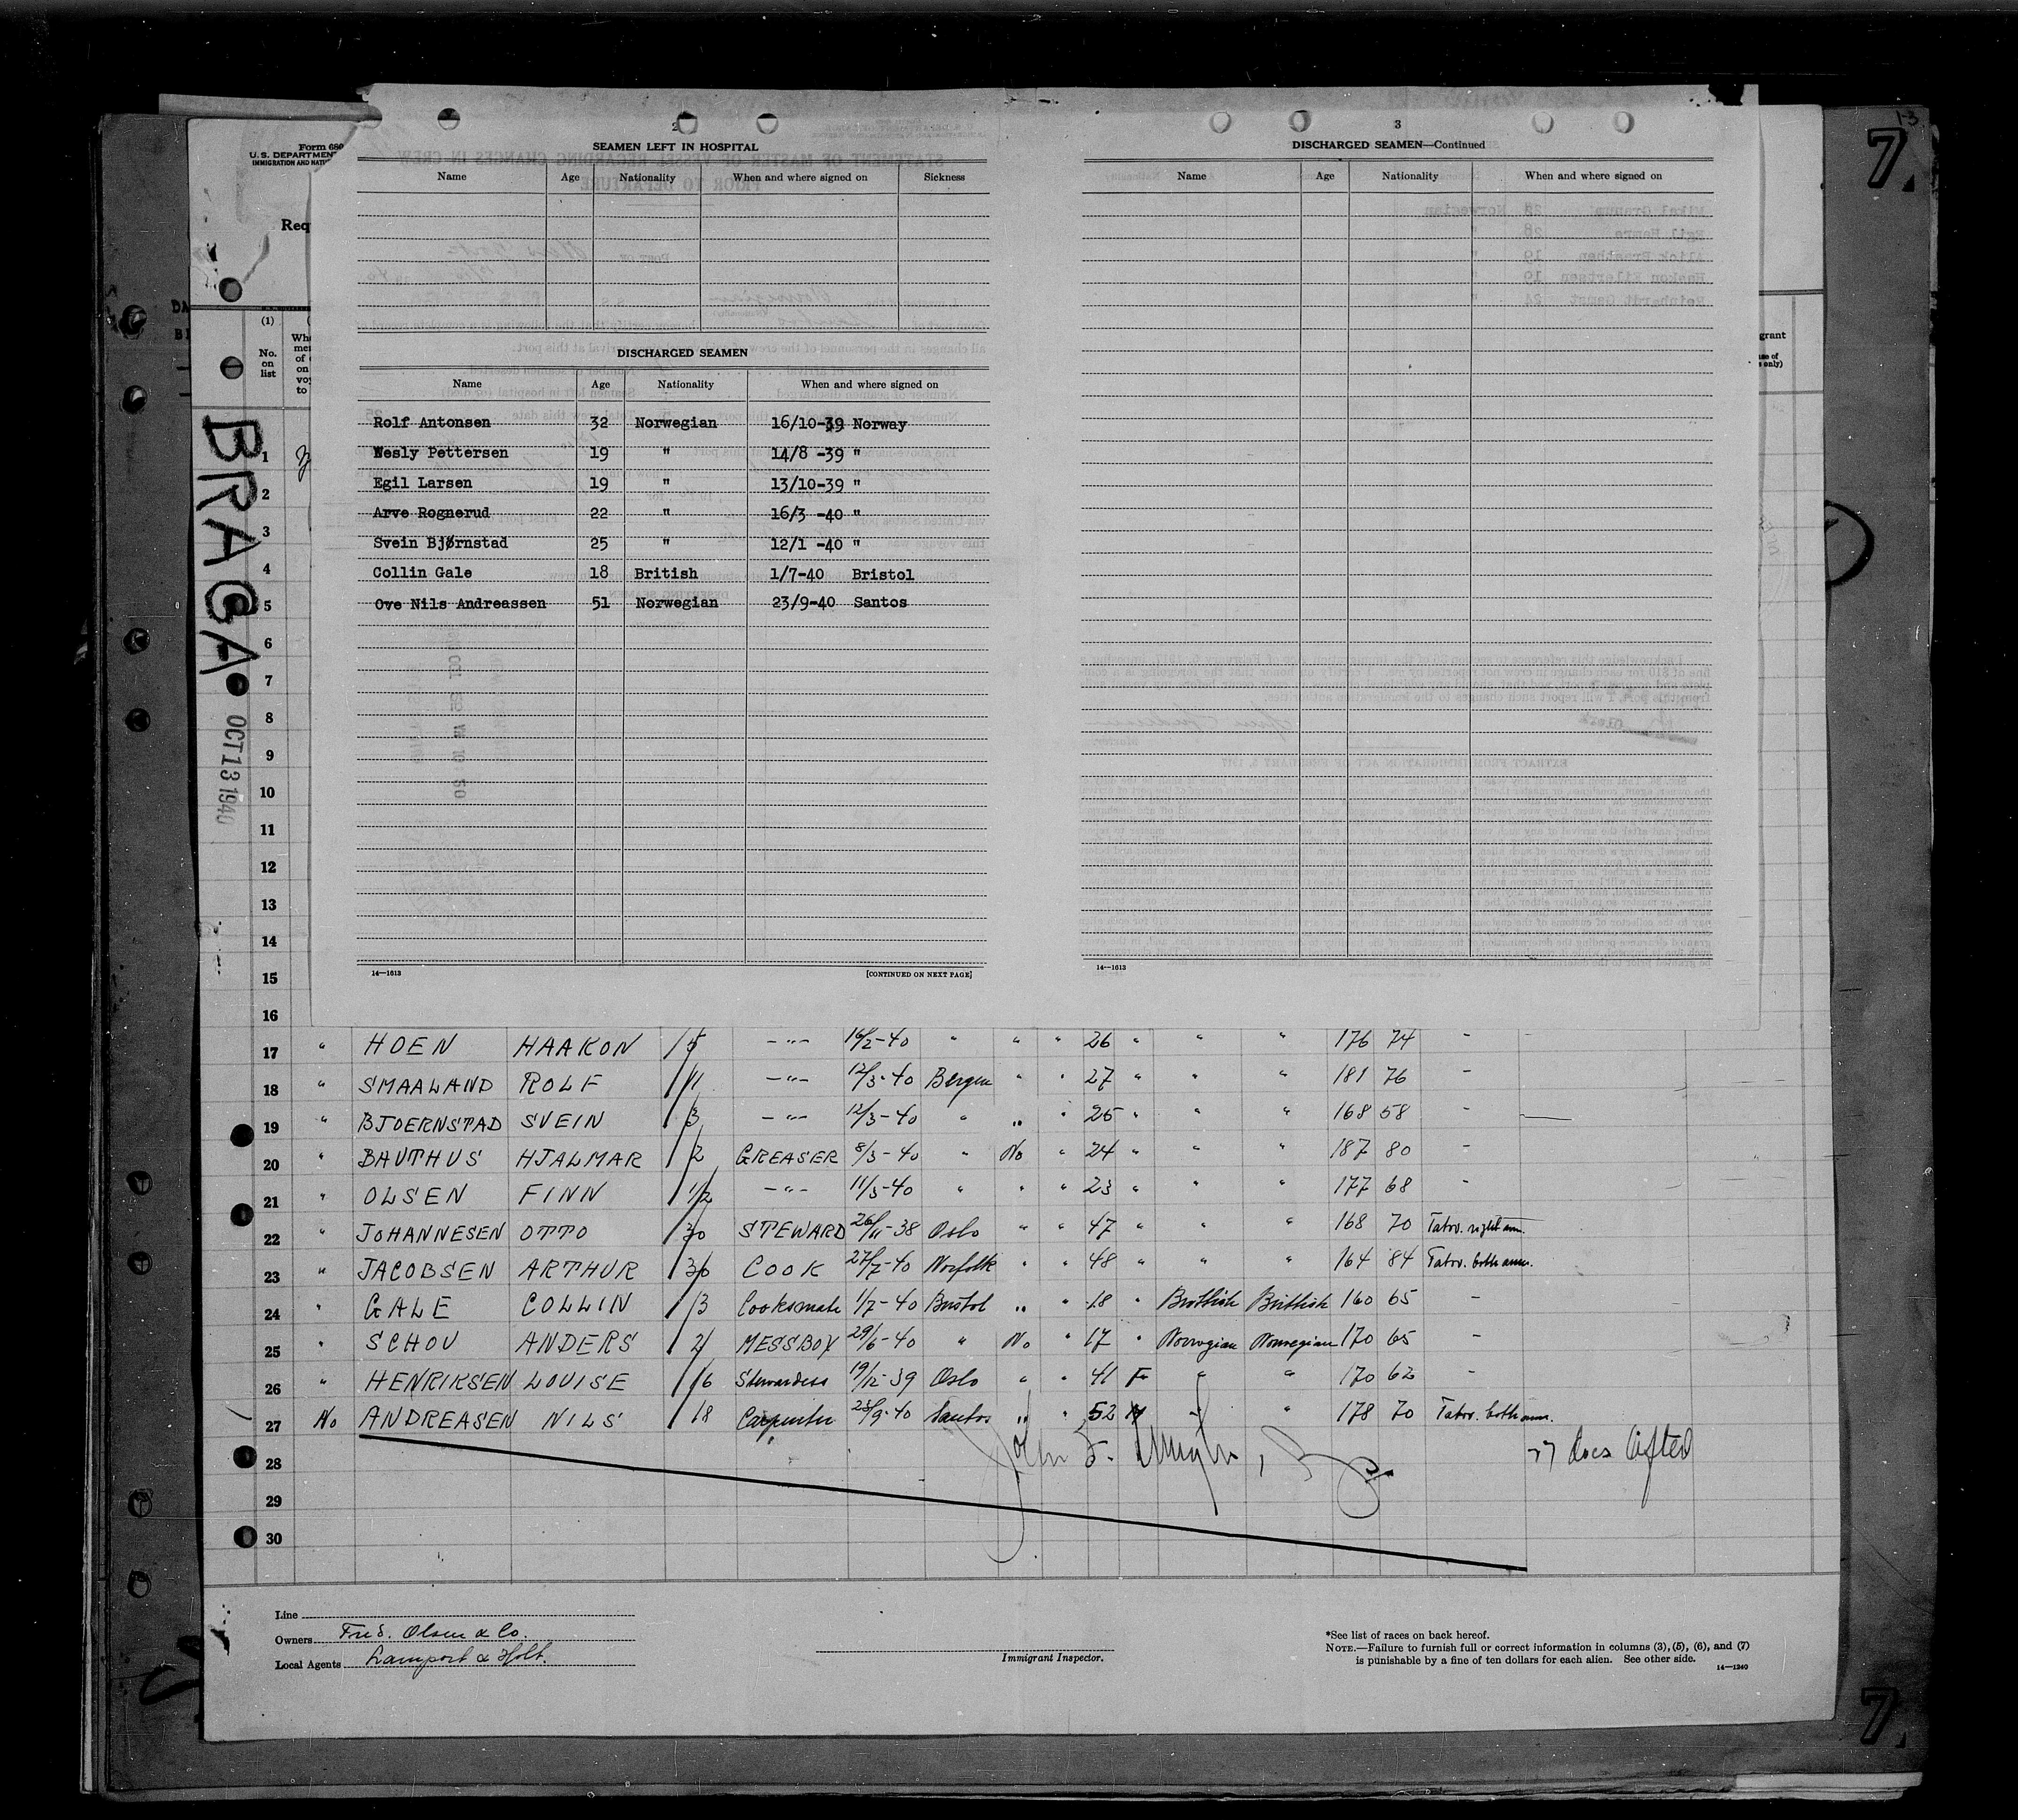 7
1-3
Form 680
U.S. DEPARTMENT
IMMIGRATION AND NATU
Req
2
SEAMEN LEFT IN HOSPITAL
Name Age Nationality When and where signed on Sickness
DISCHARGED SEAMEN
Name Age Nationality When and where signed on
Rolf Antonsen 32 Norwegian 16/10-39 Norway
Wesly Pettersen 19 " 14/8 -39 "
Egil Larsen 19 " 13/10-39 "
Arve Rognerud 22 " 16/3 -40 "
Svein Bjørnstad 25 " 12/1 -40 "
Collin Gale 18 British 1/7-40 Bristol
Ove Nils Andreassen 51 Norwegian 23/9-40 Santos
14—1613 [CONTINUED ON NEXT PAGE]
3
DISCHARGED SEAMEN—Continued
Name Age Nationality When and where signed on
14—1613
(1)
No. on list
BRAGA
OCT 13 1940
1
2
3
4
5
6
7
8
9
10
11
12
13
14
15
16
17 " HOEN HAAKON 5 -"- 16/2-40 " " " 26 " " " 176 74 -
18 " SMAALAND ROLF 11 -"- 12/3-40 Bergen " " 27 " " " 181 76 -
19 " BJOERNSTAD SVEIN 3 -"- 12/3-40 " " " 25 " " " 168 58 -
20 " BAUTHUS HJALMAR 2 GREASER 8/3-40 " No " 24 " " " 187 80 -
21 " OLSEN FINN 1/2 -"- 11/3-40 " " " 23 " " " 177 68 -
22 " JOHANNESEN OTTO 30 STEWARD 26/11-38 Oslo " " 47 " " " 168 70 Tatov. right arm.
23 " JACOBSEN ARTHUR 30 COOK 27/7-40 Norfolk " " 48 " " " 164 84 Tatov. both arms.
24 " GALE COLLIN 3 Cooksmate 1/7-40 Bristol " " 18 " Brittish Brittish 160 65 -
25 " SCHOU ANDERS 2 MESSBOY 29/6-40 " No " 17 " Norwegian Norwegian 170 65 -
26 " HENRIKSEN LOUISE 16 Stewardess 19/12-39 Oslo " " 41 F " " 170 62 -
27 No ANDREASEN NILS 18 Carpenter 23/9-40 Santos " " 52 M " " 178 70 Tatov. both arms.
28
29
30
27 docs lifted
Line
Owners Fred. Olsen & Co.
Local Agents Lamport & Holt.
Immigrant Inspector.
*See list of races on back hereof.
NOTE.—Failure to furnish full or correct information in columns (3), (5), (6), and (7)
is punishable by a fine of ten dollars for each alien. See other side.
14—1240
7